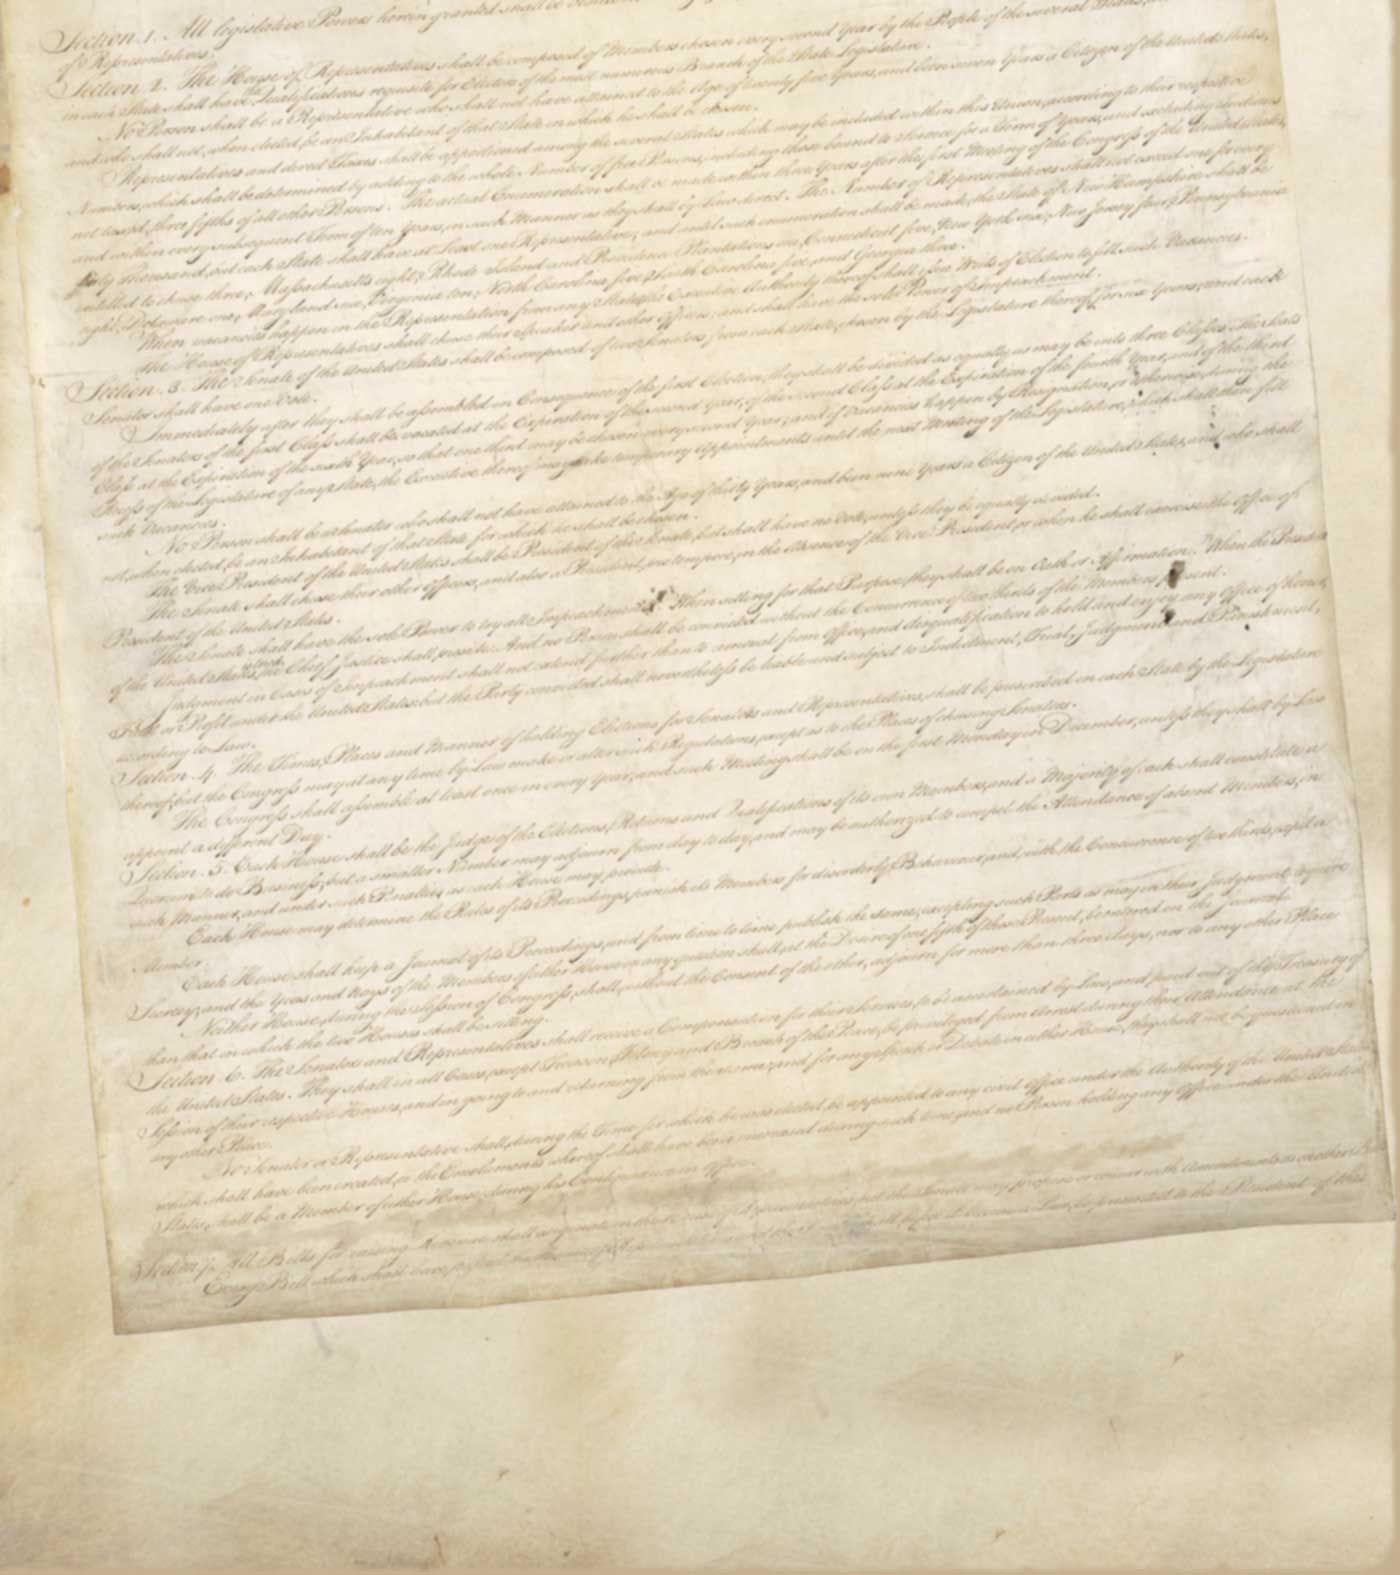 Section. 1. All legislative Powers herein granted shall be
of Representatives.
Section. 2. The House of Representatives shall be composed of Members chosen every second Year by the People of the several States,
in each State shall have the Qualifications requisite for Electors of the most numerous Branch of the State Legislature.
No Person shall be a Representative who shall not have attained to the Age of twenty five Years, and been seven Years a Citizen of the United States,
and who shall not, when elected, be an Inhabitant of that State in which he shall be chosen.
Representatives and direct Taxes shall be apportioned among the several States which may be included within this Union, according to their respective
Numbers, which shall be determined by adding to the whole Number of free Persons, including those bound to Service for a Term of Years, and excluding Indians
not taxed, three fifths of all other Persons. The actual Enumeration shall be made within three Years after the first Meeting of the Congress of the United States,
and within every subsequent Term of ten Years, in such Manner as they shall by Law direct. The Number of Representatives shall not exceed one for every
thirty Thousand, but each State shall have at Least one Representative; and until such enumeration shall be made, the State of New Hampshire shall be
entitled to chuse three, Massachusetts eight, Rhode Island and Providence Plantations one, Connecticut five, New York six, New Jersey four, Pennsylvania
eight, Delaware one, Maryland six, Virginia ten, North Carolina five, South Carolina five, and Georgia three.
When vacancies happen in the Representation from any State, the Executive Authority thereof shall issue Writs of Election to fill such Vacancies.
The House of Representatives shall chuse their Speaker and other Officers; and shall have the sole Power of Impeachment.
Section. 3. The Senate of the United States shall be composed of two Senators from each State, chosen by the Legislature thereof, for six Years; and each
Senator shall have one Vote.
Immediately after they shall be assembled in Consequence of the first Election, they shall be divided as equally as may be into three Classes. The Seats
of the Senators of the first Class shall be vacated at the Expiration of the second Year, of the second Class at the Expiration of the fourth Year, and of the third
Class at the Expiration of the sixth Year, so that one third may be chosen every second Year; and if Vacancies happen by Resignation, or otherwise, during the
Recess of the Legislature of any State, the Executive thereof may make temporary Appointments until the next Meeting of the Legislature, which shall then fill
such Vacancies.
No Person shall be a Senator who shall not have attained to the Age of thirty Years, and been nine Years a Citizen of the United States, and who shall
not, when elected, be an Inhabitant of that State for which he shall be chosen.
The Vice President of the United States shall be President of the Senate, but shall have no Vote, unless they be equally divided.
The Senate shall chuse their other Officers, and also a President pro tempore, in the Absence of the Vice President, or when he shall exercise the Office of
President of the United States.
The Senate shall have the sole Power to try all Impeachments. When sitting for that Purpose, they shall be on Oath or Affirmation. When the President
of the United States is tried, the Chief Justice shall preside: And no Person shall be convicted without the Concurrence of two thirds of the Members present.
Judgment in Cases of Impeachment shall not extend further than to removal from Office, and disqualification to hold and enjoy any Office of honor,
Trust or Profit under the United States: but the Party convicted shall nevertheless be liable and subject to Indictment, Trial, Judgment and Punishment,
according to Law.
Section. 4. The Times, Places and Manner of holding Elections for Senators and Representatives, shall be prescribed in each State by the Legislature
thereof; but the Congress may at any time by Law make or alter such Regulations, except as to the Places of chusing Senators.
The Congress shall assemble at least once in every Year, and such Meeting shall be on the first Monday in December, unless they shall by Law
appoint a different Day.
Section. 5. Each House shall be the Judge of the Elections, Returns and Qualifications of its own Members, and a Majority of each shall constitute a
Quorum to do Business; but a smaller Number may adjourn from day to day, and may be authorized to compel the Attendance of absent Members, in
such Manner, and under such Penalties as each House may provide.
Each House may determine the Rules of its Proceedings, punish its Members for disorderly Behaviour, and, with the Concurrence of two thirds, expel a
Member.
Each House shall keep a Journal of its Proceedings, and from time to time publish the same, excepting such Parts as may in their Judgment require
Secrecy; and the Yeas and Nays of the Members of either House on any question shall, at the Desire of one fifth of those Present, be entered on the Journal.
Neither House, during the Session of Congress, shall, without the Consent of the other, adjourn for more than three days, nor to any other Place
than that in which the two Houses shall be sitting.
Section. 6. The Senators and Representatives shall receive a Compensation for their Services, to be ascertained by Law, and paid out of the Treasury of
the United States. They shall in all Cases, except Treason, Felony and Breach of the Peace, be privileged from Arrest during their Attendance at the
Session of their respective Houses, and in going to and returning from the same; and for any Speech or Debate in either House, they shall not be questioned in
any other Place.
No Senator or Representative shall, during the Time for which he was elected, be appointed to any civil Office under the Authority of the United States
which shall have been created, or the Emoluments whereof shall have been encreased during such time; and no Person holding any Office under the United
States, shall be a Member of either House during his Continuance in Office.
Section. 7. All Bills for raising Revenue shall originate in the House of Representatives; but the Senate may propose or concur with Amendments as on other Bills.
Every Bill which shall have passed the House of Representatives and the Senate, shall, before it become a Law, be presented to the President of the